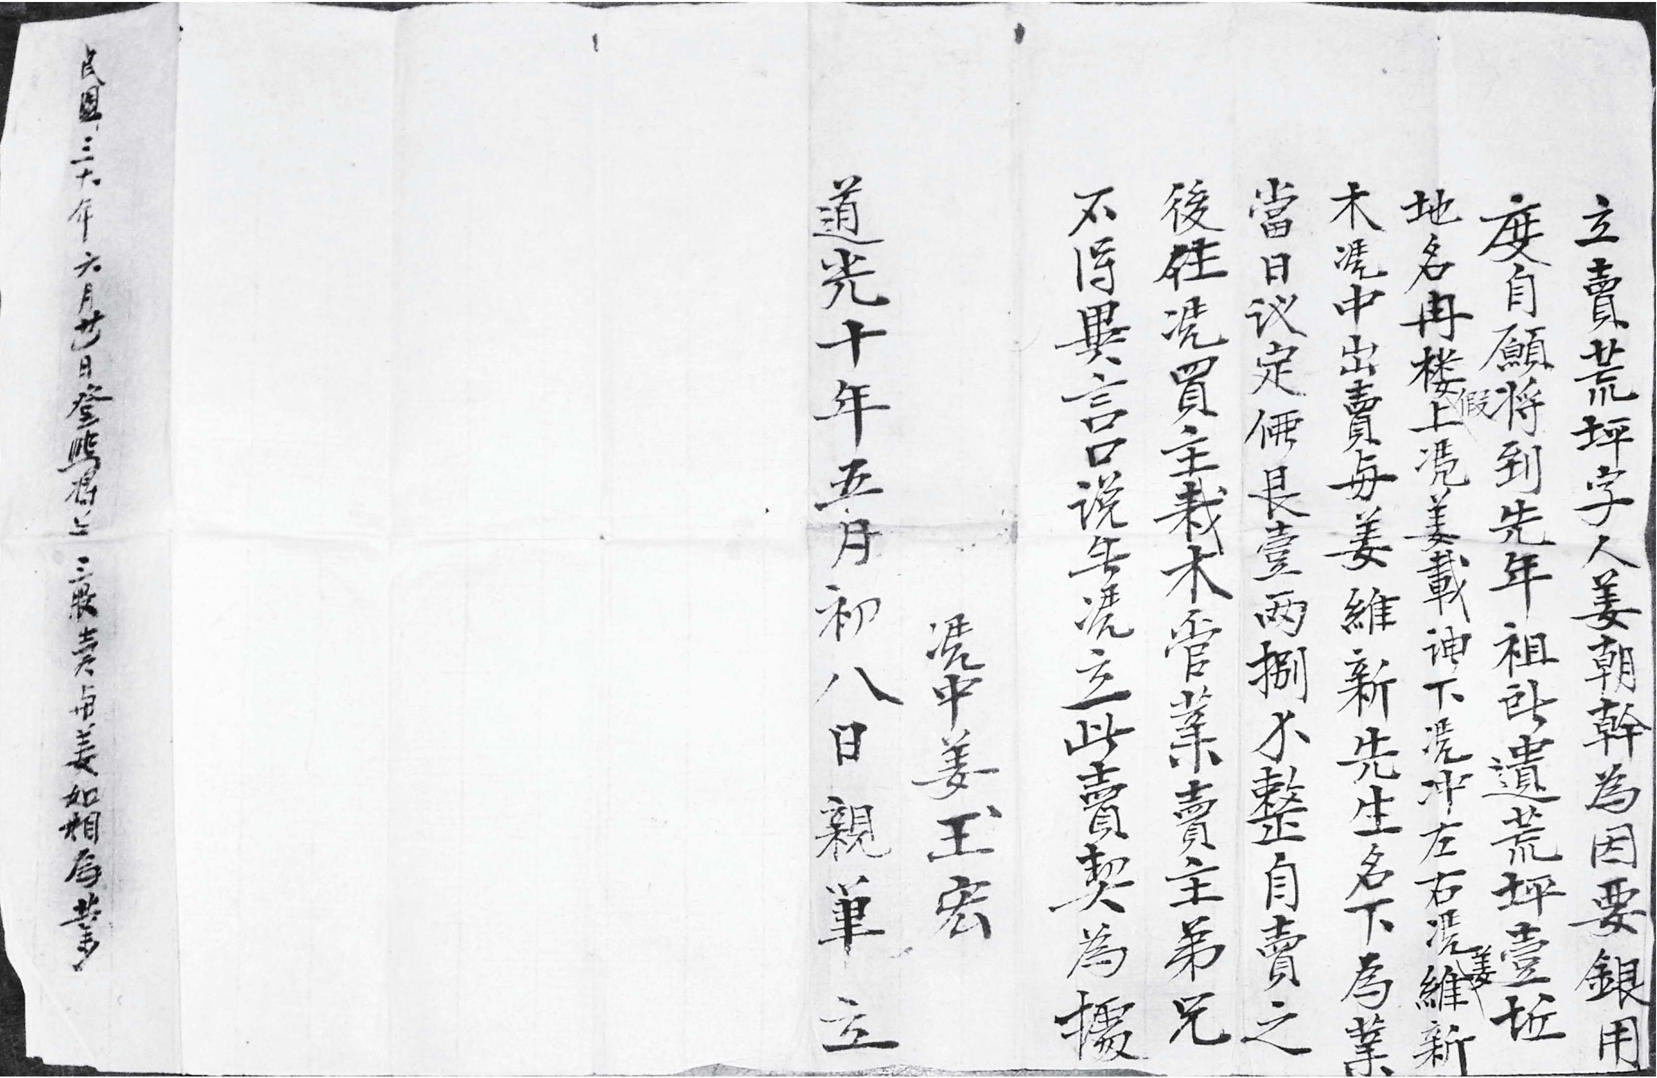 立賣荒坪字人姜朝幹為因要銀用
度自願將到先年祖所遺荒坪壹坵
地名冉楼假上凴姜載神下凴冲左右凴姜維新
木凴中出賣与姜維新先生名下為業
當日议定価艮壹両捌分整自賣之
後任凴買主栽木管業賣主弟兄
不得異言口说無凴立此賣契為據
凴中姜玉宏
道光十年五月初八日親筆立
民国三十年六月廿日登熙弟兄三家賣与姜如相為業